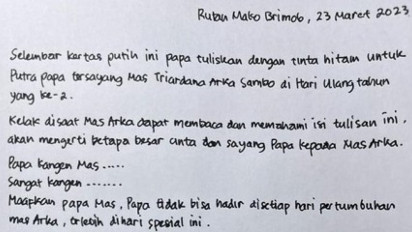 Rutan Mako Brimob, 23 Maret 2023
Selembar kartas putih ini papa tuliskan dengan tinta hitam untuk
Putra papa tersayang Mas Triardana Arka Sambo di Hari Ulang tahun
yang ke-2.
Kelak disaat Mas Arka dapat membaca dan memahami isi tulisan ini,
akan mengerti betapa besar cinta dan sayang Papa kepada Mas Arka.
Papa Kangen Mas .....
Sangat kangen .......
Maafkan papa Mas, Papa tidak bisa hadir disetiap hari pertumbuhan
mas Arka, terlebih dihari spesial ini.